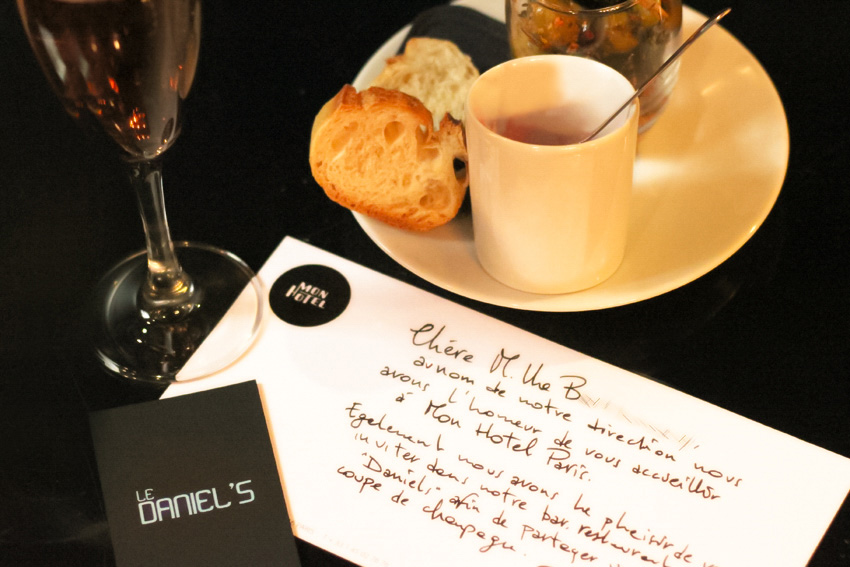 MON
HOTEL
Chére M. the B
au nom de notre direction nous
avons l'honneur de vous accueillir
à Mon Hotel Paris.
Egalement nous avons le pleisir de
inviter dans notre bar. restaurent
"Daniels" afin de partager
coupe de champagne.
LE
DANIEL'S